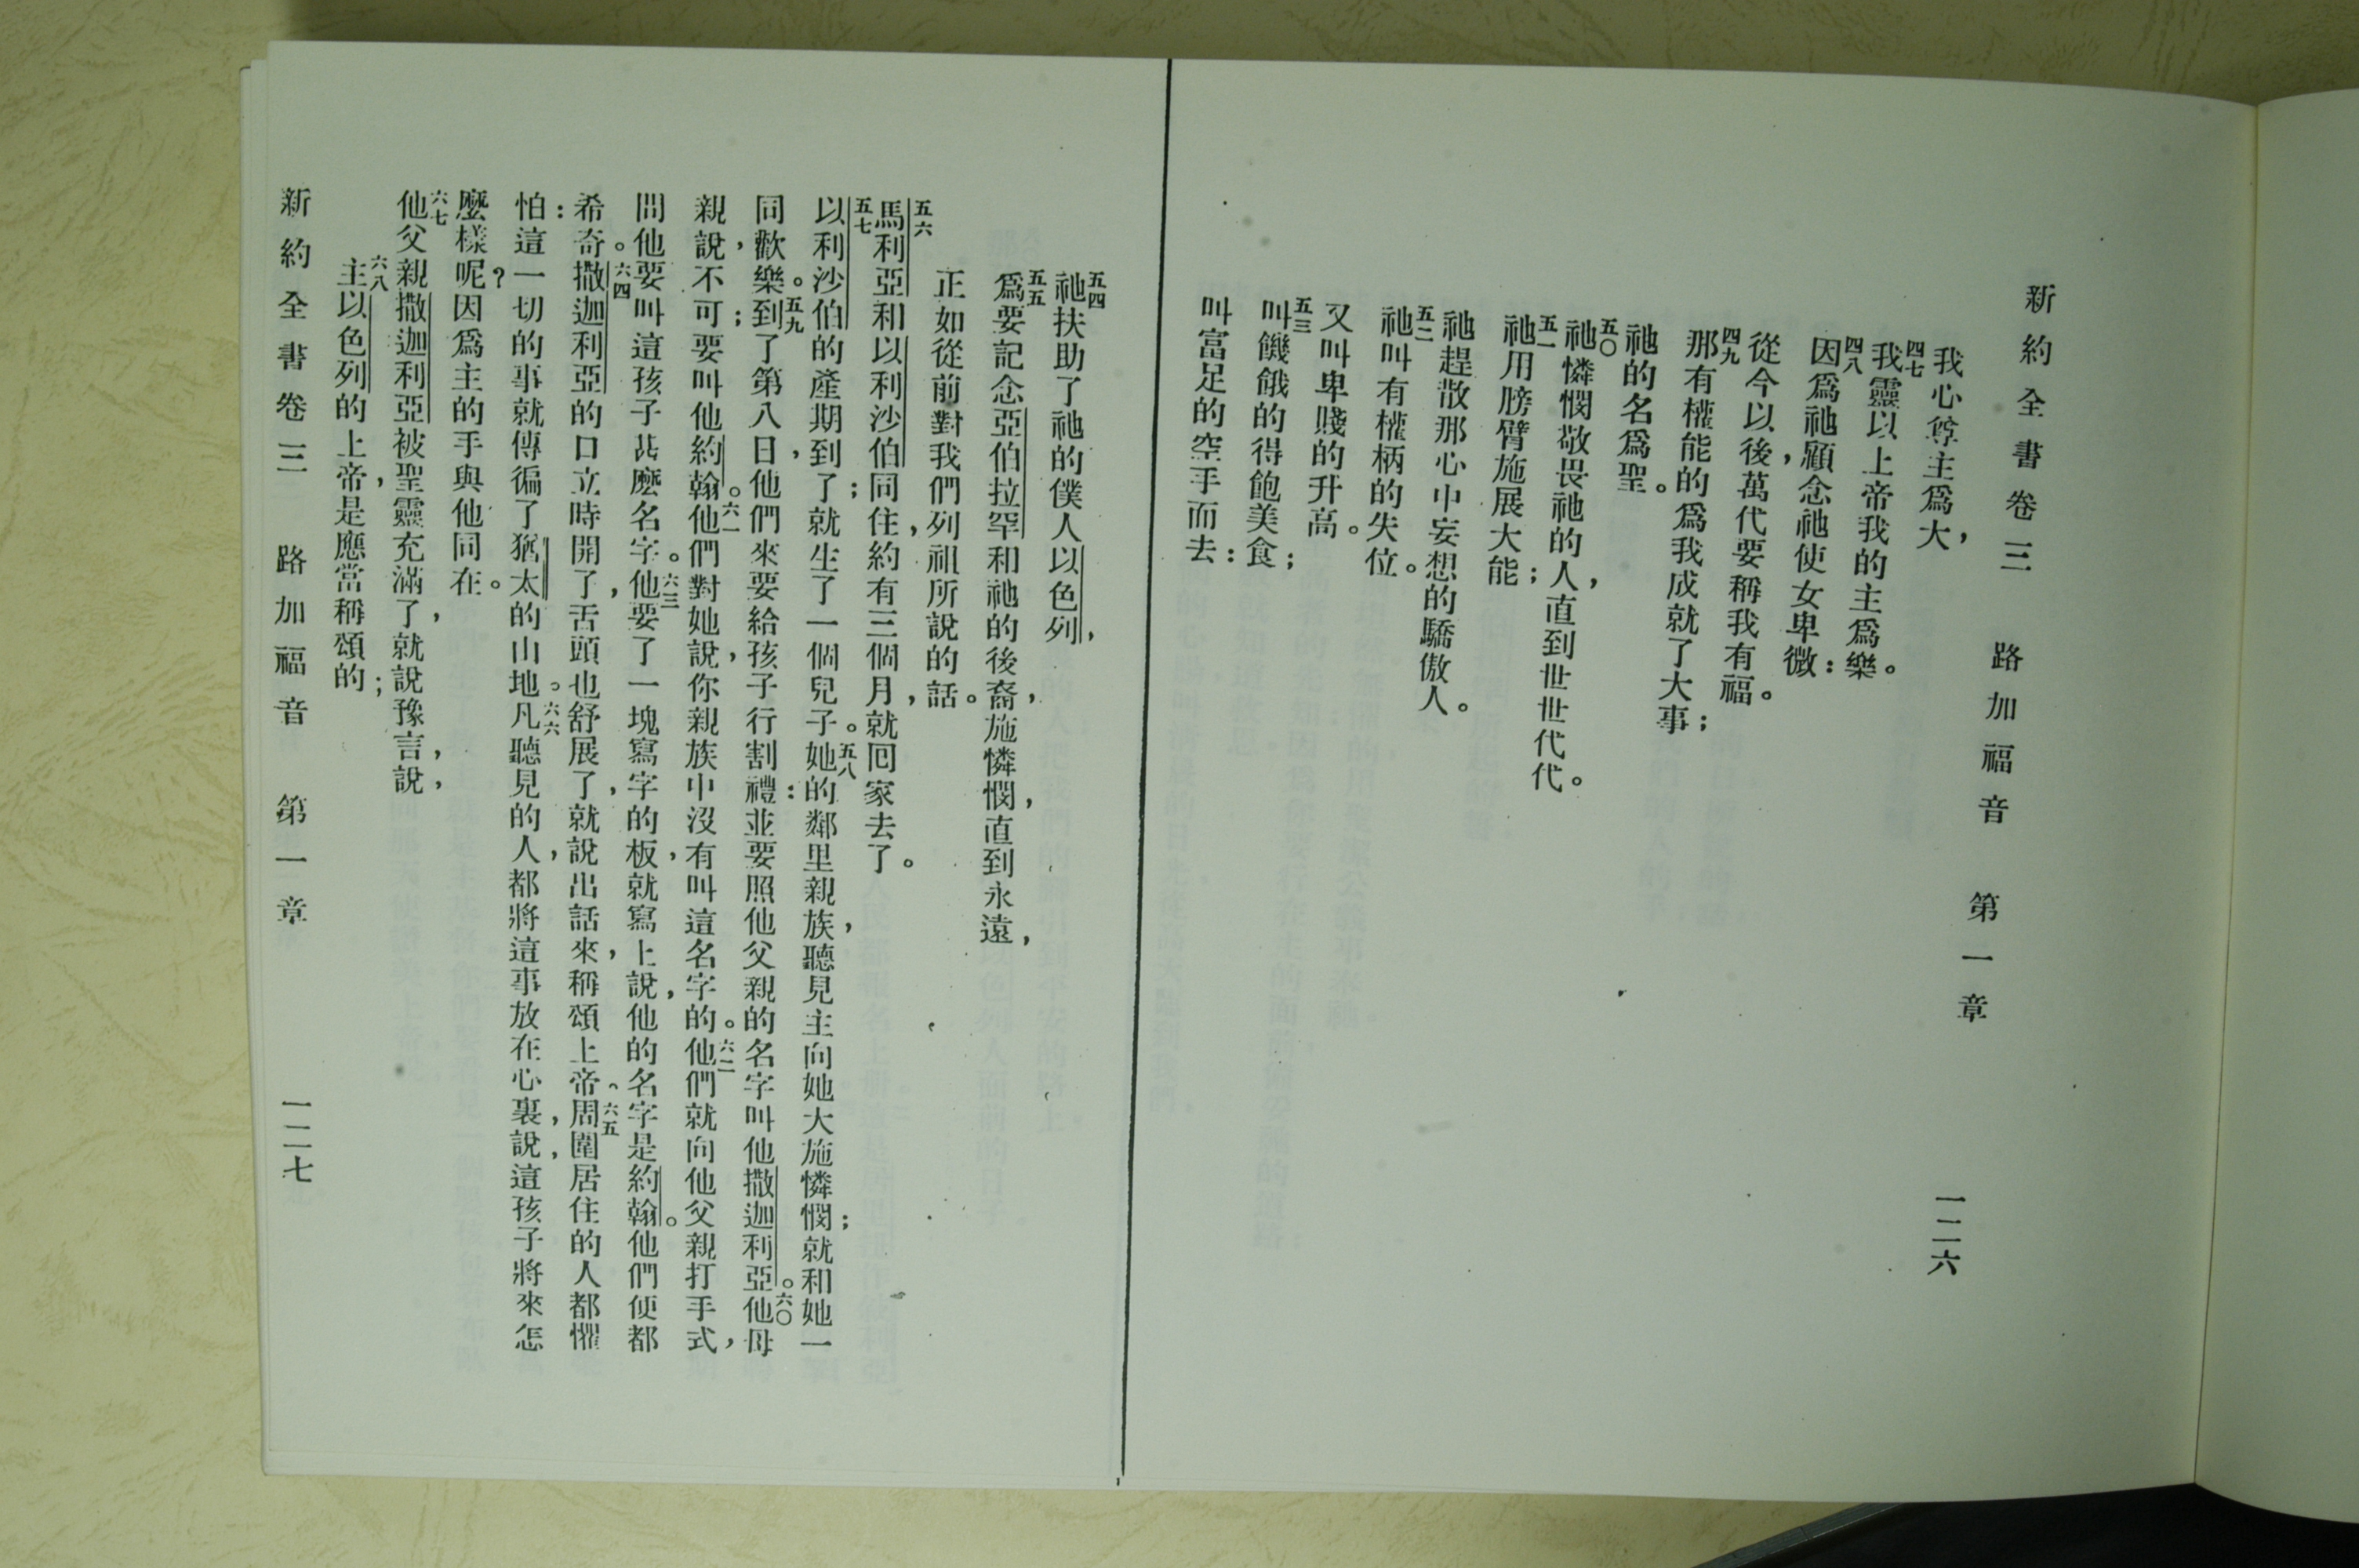 新約全書卷三 路加福音 第一章 一二六
我心尊主爲大，
四七我靈以上帝我的主爲樂。
四八因爲祂顧念祂使女卑微：
從今以後，萬代要稱我有福。
四九那有權能的爲我成就了大事；
祂的名爲聖。
五〇祂憐憫敬畏祂的人，直到世世代代。
五一祂用膀臂施展大能；
祂趕散那心中妄想的驕傲人。
五二祂叫有權柄的失位。
又叫卑賤的升高。
五三叫饑餓的得飽美食；
叫富足的空手而去：
五四祂扶助了祂的僕人以色列，
五五爲要記念亞伯拉罕和祂的後裔，施憐憫，直到永遠，
正如從前對我們列祖所說的話。
五六馬利亞和以利沙伯同住，約有三個月，就回家去了。
五七以利沙伯的產期到了；就生了一個兒子。五八她的鄰里親族，聽見主向她大施憐憫；就和她一
同歡樂。五九到了第八日，他們來要給孩子行割禮：並要照他父親的名字叫他撒迦利亞。六〇他母
親說，不可；要叫他約翰。六一他們對她說，你親族中沒有叫這名字的。六二他們就向他父親打手式，
問他要叫這孩子甚麼名字。六三他要了一塊寫字的板，就寫上說，他的名字是約翰。他們便都
希奇。六四撒迦利亞的口立時開了，舌頭也舒展了，就說出話來，稱頌上帝。六五周圍居住的人都懼
怕：這一切的事就傳徧了猶太的山地。六六凡聽見的人，都將這事放在心裏，說，這孩子將來怎
麼樣呢？因爲主的手與他同在。
六七他父親撒迦利亞被聖靈充滿了，就說豫言，說，
六八主以色列的上帝，是應當稱頌的；
新約全書卷三 路加福音 第一章 一二七